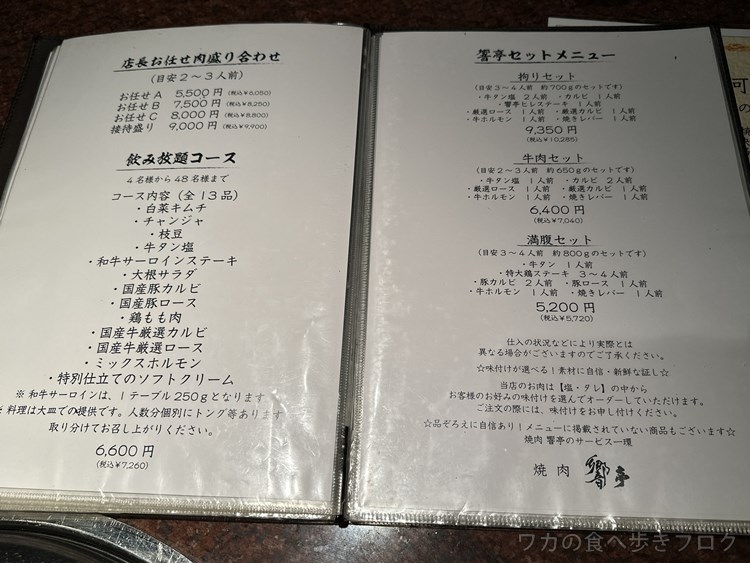 店長お任せ肉盛り合わせ
(目安2～3人前)
お任せA 5,500円 (税込¥6,050)
お任せB 7,500円 (税込¥8,250)
お任せC 8,000円 (税込¥8,800)
接待盛り 9,000円 (税込¥9,900)
飲み放題コース
4名様から48名様まで
コース内容(全13品)
・白菜キムチ
・チャンジャ
・枝豆
・牛タン塩
・和牛サーロインステーキ
・大根サラダ
・国産豚カルビ
・国産豚ロース
・鶏もも肉
・国産牛厳選カルビ
・国産牛厳選ロース
・ミックスホルモン
・特別仕立てのソフトクリーム
※和牛サーロインは、1テーブル250gとなります
※料理は大皿での提供です。人数分個別にトング等あります
取り分けてお召し上がりください。
6,600円
(税込¥7,260)
響亭セットメニュー
拘りセット
(目安3～4人前 約700gのセットです)
・牛タン塩 2人前 ・カルビ 1人前
・響亭ヒレステーキ 1人前
・厳選ロース 1人前 ・厳選カルビ 1人前
・牛ホルモン 1人前 ・焼きレバー 1人前
9,350円
(税込¥10,285)
牛肉セット
(目安2～3人前 約650gのセットです)
・牛タン塩 1人前 ・カルビ 2人前
・厳選ロース 1人前 ・厳選カルビ 1人前
・牛ホルモン 1人前 ・焼きレバー 1人前
6,400円
(税込¥7,040)
満腹セット
(目安3～4人前 約800gのセットです)
・牛タン 1人前
・特大鶏ステーキ 3～4人前
・豚カルビ 2人前 ・豚ロース 1人前
・牛ホルモン 1人前 ・焼きレバー 1人前
5,200円
(税込¥5,720)
仕入の状況などにより実際とは
異なる場合がございますのでご了承ください。
☆味付けが選べる!素材に自信・新鮮な証し☆
当店のお肉は【塩・タレ】の中から
お客様のお好みの味付けを選んでオーダーしていただけます。
ご注文の際には、味付けをお申し付けください。
☆品ぞろえに自信あり!メニューに掲載されていない商品もございます☆
焼肉 響亭のサービス一環
焼肉 響亭
可
の
ワカの食べ歩きブログ